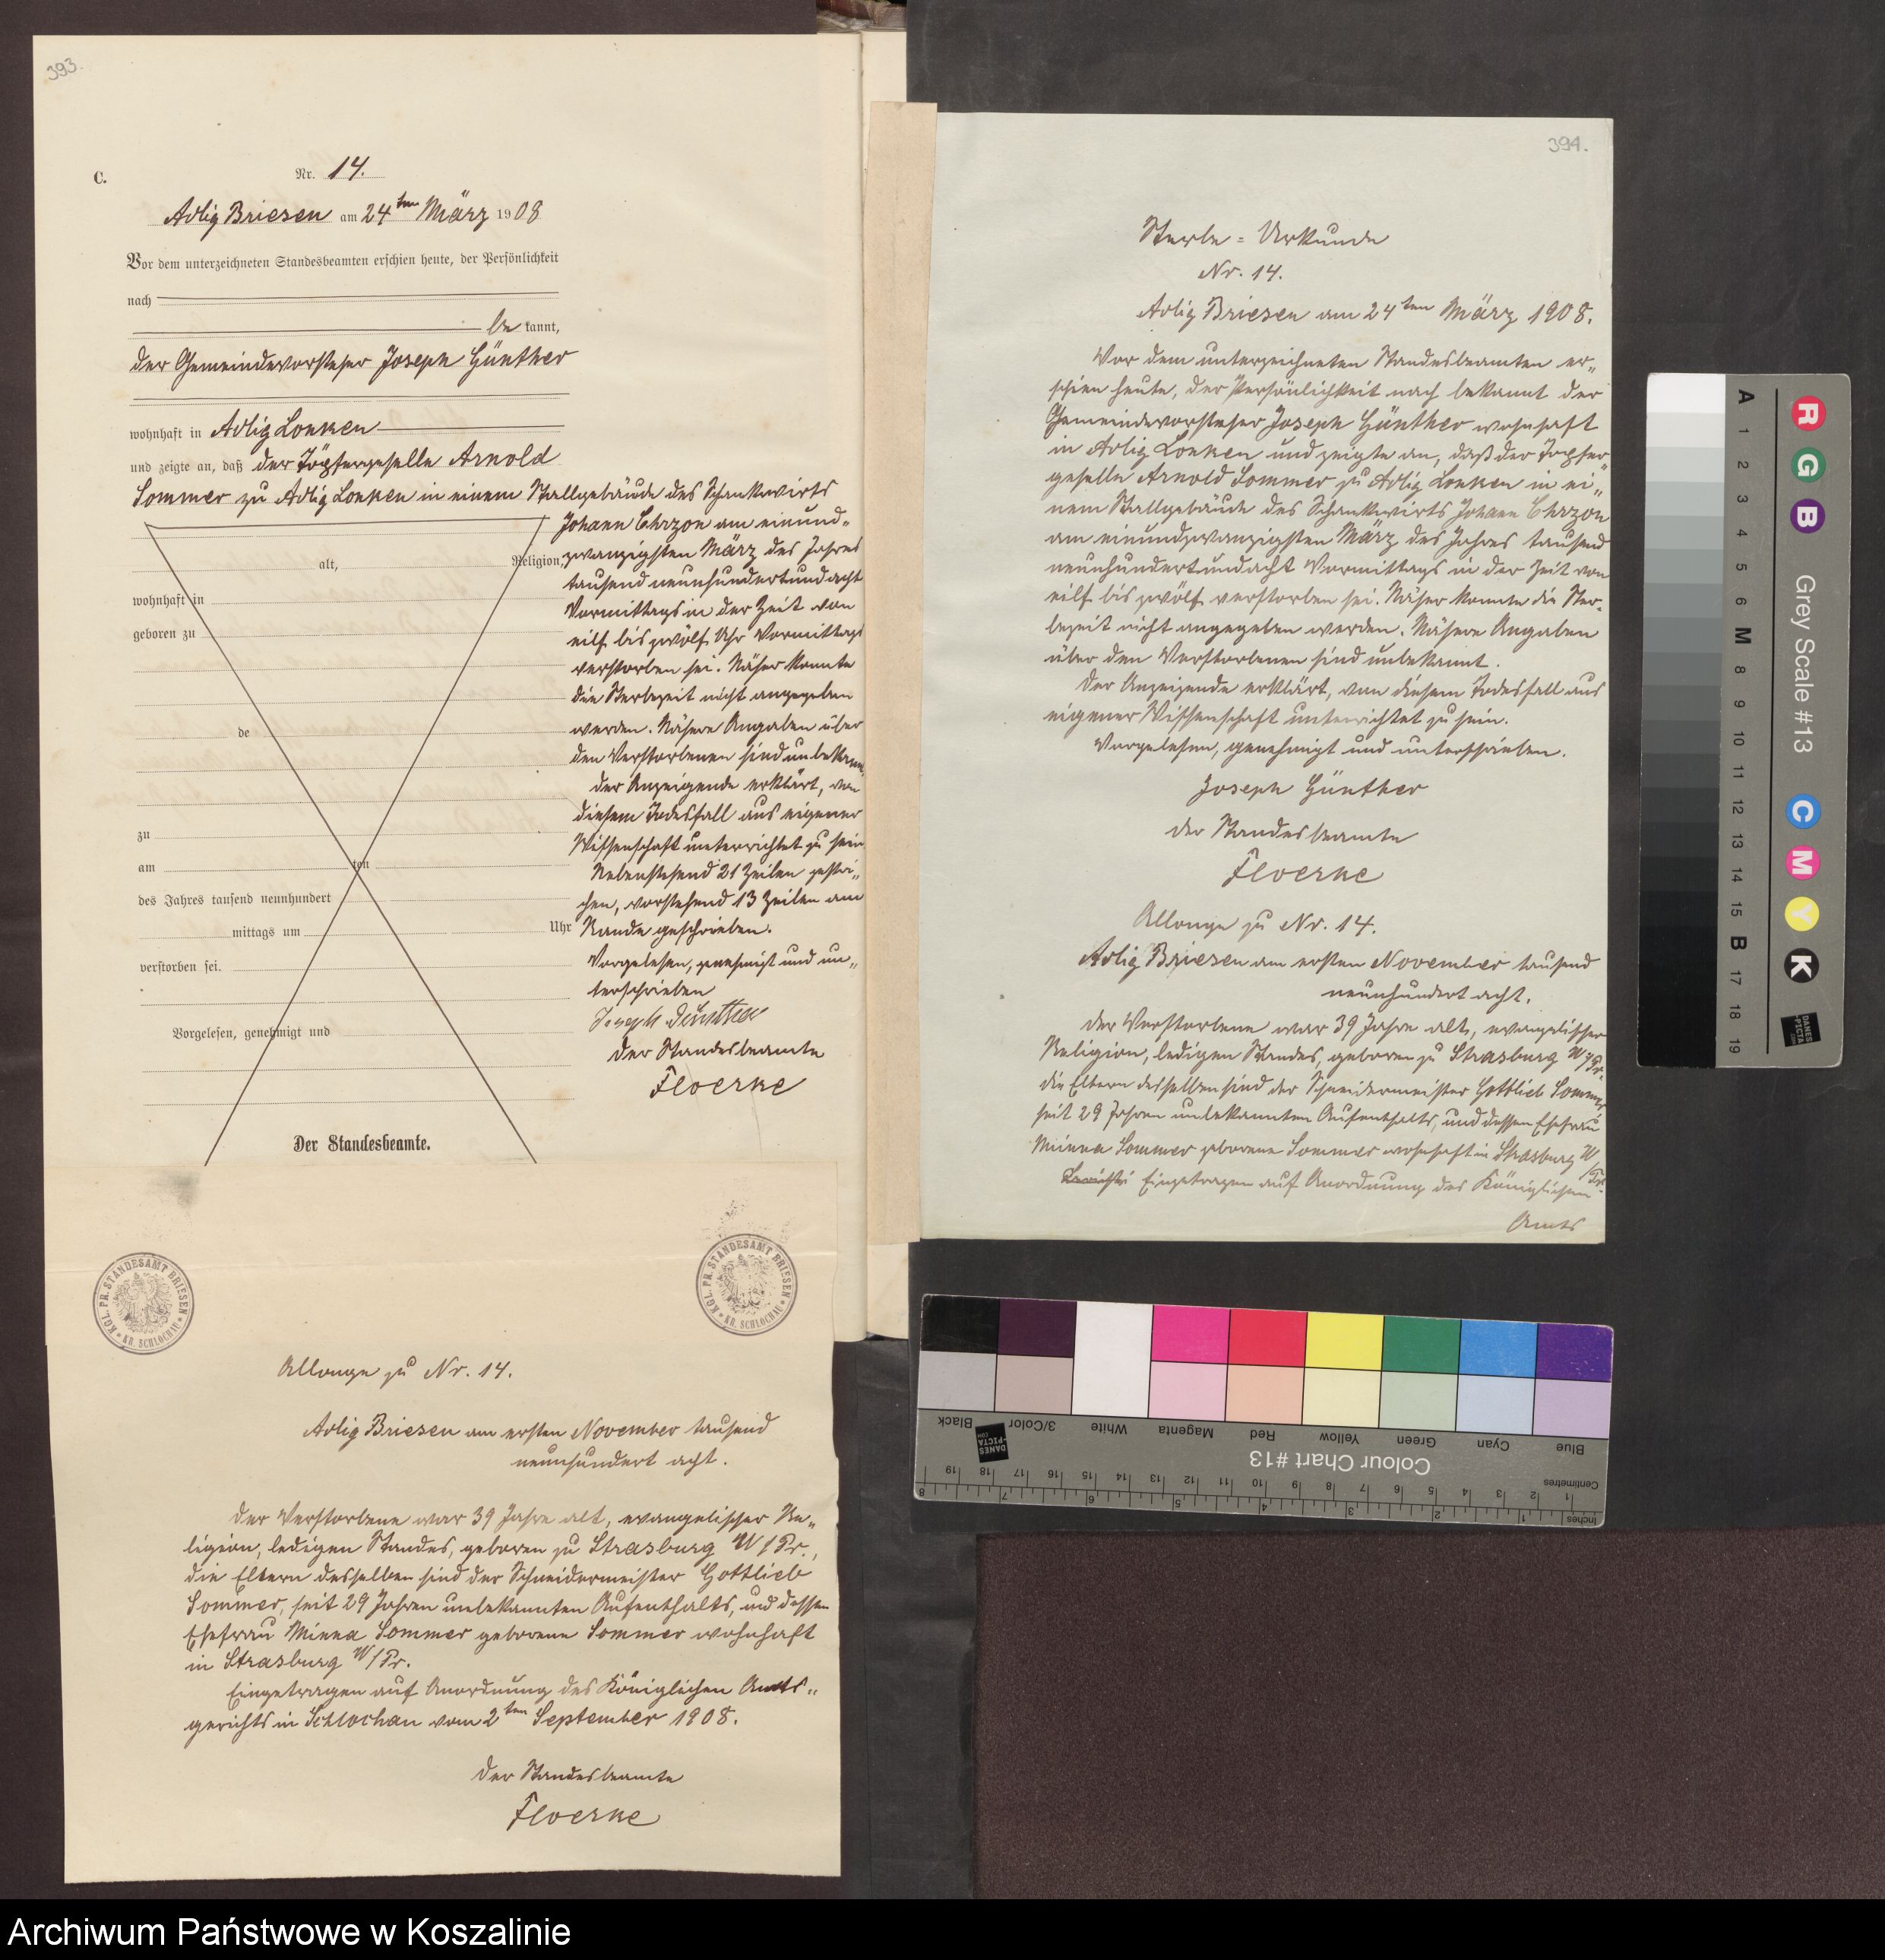 393.
C.
Nr. 14.
Adlig Briesen am 24ten März 1908
Vor dem unterzeichneten Standesbeamten erschien heute, der Persönlichkeit
nach
be kannt,
der Gemeindevorsteher Joseph Günther
wohnhaft in Adlig Lonken
und zeigte an, daß der Töpfergeselle Arnold
Sommer zu Adlig Lonken in einem Stallgebäude des Schankwirts
Johann Chrzon am einund-
zwanzigsten März des Jahres
tausend neunhundertundacht
Vormittags in der Zeit von
eilf bis zwölf Uhr Vormittags
verstorben sei. Näher konnte
die Sterbezeit nicht angegeben
werden. Nähere Angaben über
den Verstorbenen sind unbekannt.
Der Anzeigende erklärt, von
diesem Todesfall aus eigener
Wissenschaft unterrichtet zu sein
Nebenstehend 21 Zeilen gestri-
chen, vorstehend 13 Zeilen am
Rande geschrieben.
Vorgelesen, genehmigt und un-
terschrieben
Joseph Günther
Der Standesbeamte
Floerke
alt,
Religion,
wohnhaft in
geboren zu
de
zu
am
ten
des Jahres tausend neunhundert
mittags um
Uhr
verstorben sei.
Vorgelesen, genehmigt und
Der Standesbeamte.
KGL. PR. STANDESAMT BRIESEN
KR. SCHLOCHAU
KGL. PR. STANDESAMT BRIESEN
KR. SCHLOCHAU
Allonge zu Nr. 14.
Adlig Briesen am ersten November tausend
neunhundert acht.
Der Verstorbene war 39 Jahre alt, evangelischer Re-
ligion, ledigen Standes, geboren zu Strasburg W/Pr.,
die Eltern desselben sind der Schneidermeister Gottlieb
Sommer, seit 29 Jahren unbekannten Aufenthalts, und dessen
Ehefrau Minna Sommer geborene Sommer wohnhaft
in Strasburg W/Pr.
Eingetragen auf Anordnung des Königlichen Amts-
gerichts in Schlochau vom 2ten September 1908.
Der Standesbeamte
Floerke
394.
Sterbe-Urkunde
Nr. 14.
Adlig Briesen am 24ten März 1908.
Vor dem unterzeichneten Standesbeamten er-
schien heute, der Persönlichkeit nach bekannt der
Gemeindevorsteher Joseph Günther wohnhaft
in Adlig Lonken und zeigte an, daß der Töpfer-
geselle Arnold Sommer zu Adlig Lonken in ei-
nem Stallgebäude des Schankwirts Johann Chrzon
am einundzwanzigsten März des Jahres tausend
neunhundertundacht Vormittags in der Zeit von
eilf bis zwölf verstorben sei. Näher konnte die Ster-
bezeit nicht angegeben werden. Nähere Angaben
über den Verstorbenen sind unbekannt.
Der Anzeigende erklärt, von diesem Todesfall aus
eigener Wissenschaft unterrichtet zu sein.
Vorgelesen, genehmigt und unterschrieben.
Joseph Günther
Der Standesbeamte
Floerke
Allonge zu Nr. 14.
Adlig Briesen am ersten November tausend
neunhundert acht.
Der Verstorbene war 39 Jahre alt, evangelischer
Religion, ledigen Standes, geboren zu Strasburg W/Pr.
die Eltern desselben sind der Schneidermeister Gottlieb Sommer
seit 29 Jahren unbekannten Aufenthalts, und dessen Ehefrau
Minna Sommer geborene Sommer wohnhaft in Strasburg W/Pr.
Eingetragen auf Anordnung des Königlichen
Amts
A 1 2 3 4 5 6 M 8 9 10 11 12 13 14 15 B 17 18 19
R G B
Grey Scale #13
C M Y K
DANES-PICTA.COM
Black 3/Color White Magenta Red Yellow Green Cyan Blue
DANES-PICTA.COM
Colour Chart #13
Centimetres
1 2 3 4 5 6 7 8 9 10 11 12 13 14 15 16 17 18 19
Inches
1 2 3 4 5 6 7 8
Archiwum Państwowe w Koszalinie